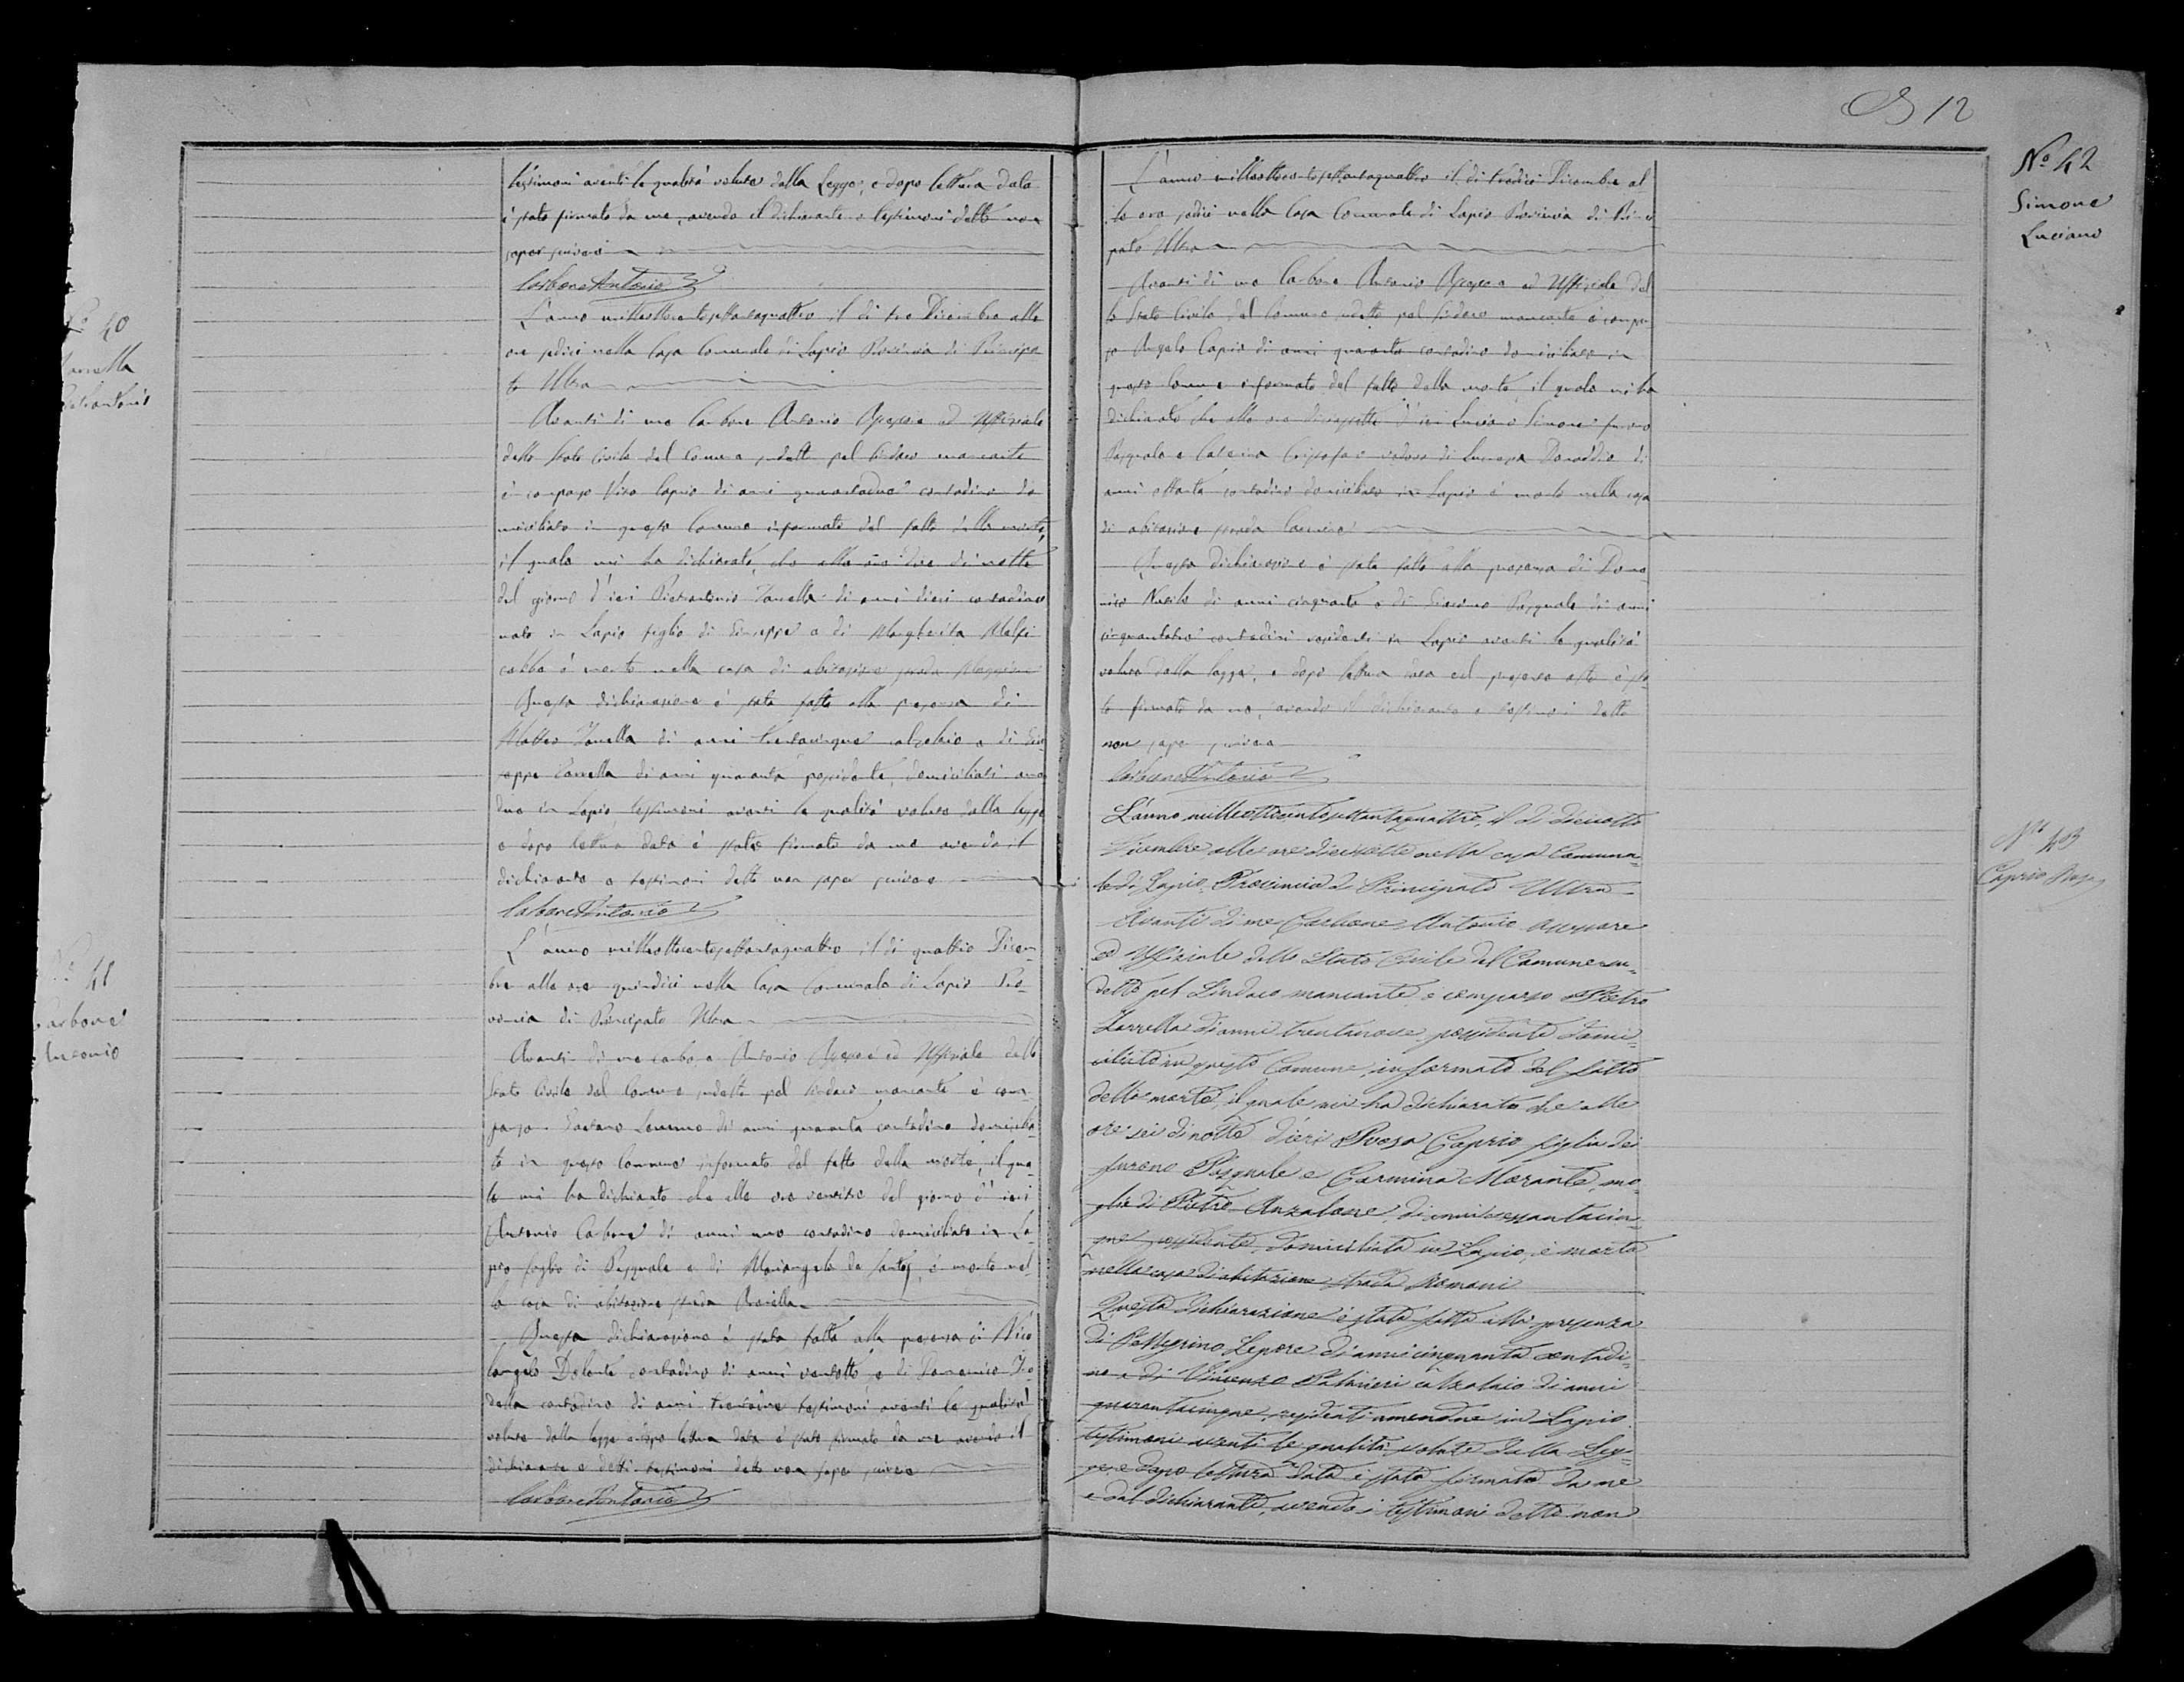 testimoni aventi le qualità volute dalla Legge, e dopo lettura data
è stato firmato da me, avendo il dichiarante e testimoni detto non
saper scrivere
Carbone Antonio
No 40
Pietrantonio
L'anno milleottocentosettantaquattro il dì tre Dicembre alle
ore sedici nella Casa Comunale di Lapio Provincia di Principa
to Ultra
Avanti di me Carbone Antonio Assessore ed Uffiziale
dello Stato Civile del Comune sudetto pel Sindaco mancante
è comparso Vito Caprio di anni quarantadue contadino do
miciliato in questo Comune informato del fatto della morte,
il quale mi ha dichiarato, che alle ore due di notte
del giorno d'ieri Pietrantonio Zarrella di anni dieci contadino
nato in Lapio figlio di Giuseppe e di Margherita
è morto nella casa di abitazione strada
Questa dichiarazione è stata fatta alla presenza di
Matteo Zarrella di anni trentacinque calzolaio e di Giu
seppe Zarrella di anni quaranta possidente, domiciliati amen
due in Lapio testimoni aventi le qualità volute dalla legge
e dopo lettura data è stato firmato da me avendo il
dichiarante e testimoni detto non saper scrivere
Carbone Antonio
No 41
Carbone
Antonio
L'anno milleottocentosettantaquattro il dì quattro Dicem-
bre alle ore quindici nella Casa Comunale di Lapio Pro-
vincia di Principato Ultra
Avanti di me Carbone Antonio Assessore ed Uffiziale dello
Stato Civile del Comune sudetto pel Sindaco mancante è com-
parso Gaetano di anni quaranta contadino domicilia-
to in questo Comune informato del fatto della morte, il qua-
le mi ha dichiarato che alle ore ventitre del giorno d'ieri
Antonio Carbone di anni uno contadino domiciliato in La-
pio figlio di Pasquale e di Mariangela de Santis, è morto nel-
la casa di abitazione strada
Questa dichiarazione è stata fatta alla presenza di Nico
langelo Delonte contadino di anni ventotto e di Domenico
contadino di anni testimoni aventi le qualità
volute dalla legge e dopo lettura data è stato firmato da me avendo il
dichiarante e detti testimoni detto non saper scrivere
Carbone Antonio
12
No 42
Simone
Luciano
L'anno milleottocentosettantaquattro il dì tredici Dicembre al
le ore sedici nella Casa Comunale di Lapio Provincia di Princi
pato Ultra
Avanti di me Carbone Antonio Assessore ed Uffiziale del
lo Stato Civile del Comune sudetto pel Sindaco mancante è compar
so Angelo Caprio di anni quaranta contadino domiciliato in
questo Comune informato del fatto della morte, il quale mi ha
dichiarato che alle ore diciassette d'ieri Luciano Simone furono
Pasquale e Caterina vedovo di Lucrezia Donoddio di
anni ottanta contadino domiciliato in Lapio è morto nella casa
di abitazione strada
Questa dichiarazione è stata fatta alla presenza di Dome
nico di anni cinquanta e di Giacomo Pasquale di anni
contadini residenti in Lapio aventi le qualità
volute dalla legge, e dopo lettura data del presente atto è sta-
to firmato da me, avendo il dichiarante e testimoni detto
non saper scrivere
Carbone Antonio
No 43
Caprio Rosa
L'anno milleottocentosettantaquattro, il dì diciotto
Dicembre alle ore diecisette nella casa Comuna-
le di Lapio Provincia di Principato Ultra
Avanti di me Carbone Antonio Assessore
ed Uffiziale dello Stato Civile del Comune su-
detto pel Sindaco mancante è comparso Pietro
Zarrella di anni trentanove possidente domi-
ciliato in questo Comune, informato del fatto
della morte, il quale mi ha dichiarato che alle
ore sei di notte d'ieri Rosa Caprio figlia dei
furono Pasquale e Carmina Morante, mo-
glie di Pietro Anzalone, di anni sessantacin-
que possidente, domiciliata in Lapio, è morta
nella casa di abitazione strada Romani
Questa dichiarazione è stata fatta alla presenza
di Pellegrino Lepore di anni cinquanta contadi-
no e di Vincenzo Palmieri calzolaio di anni
quarantacinque, residenti amendue in Lapio
testimoni aventi le qualità volute dalla Leg-
ge, e dopo lettura data è stato firmato da me
e dal dichiarante, avendo i testimoni detto non